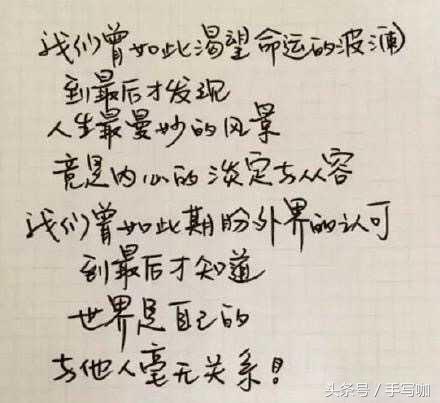 我们曾如此渴望命运的波澜
到最后才发现
人生最曼妙的风景
竟是内心的淡定与从容
我们曾如此期盼外界的认可
到最后才知道
世界是自己的
与他人毫无关系！
头条号/手写咖